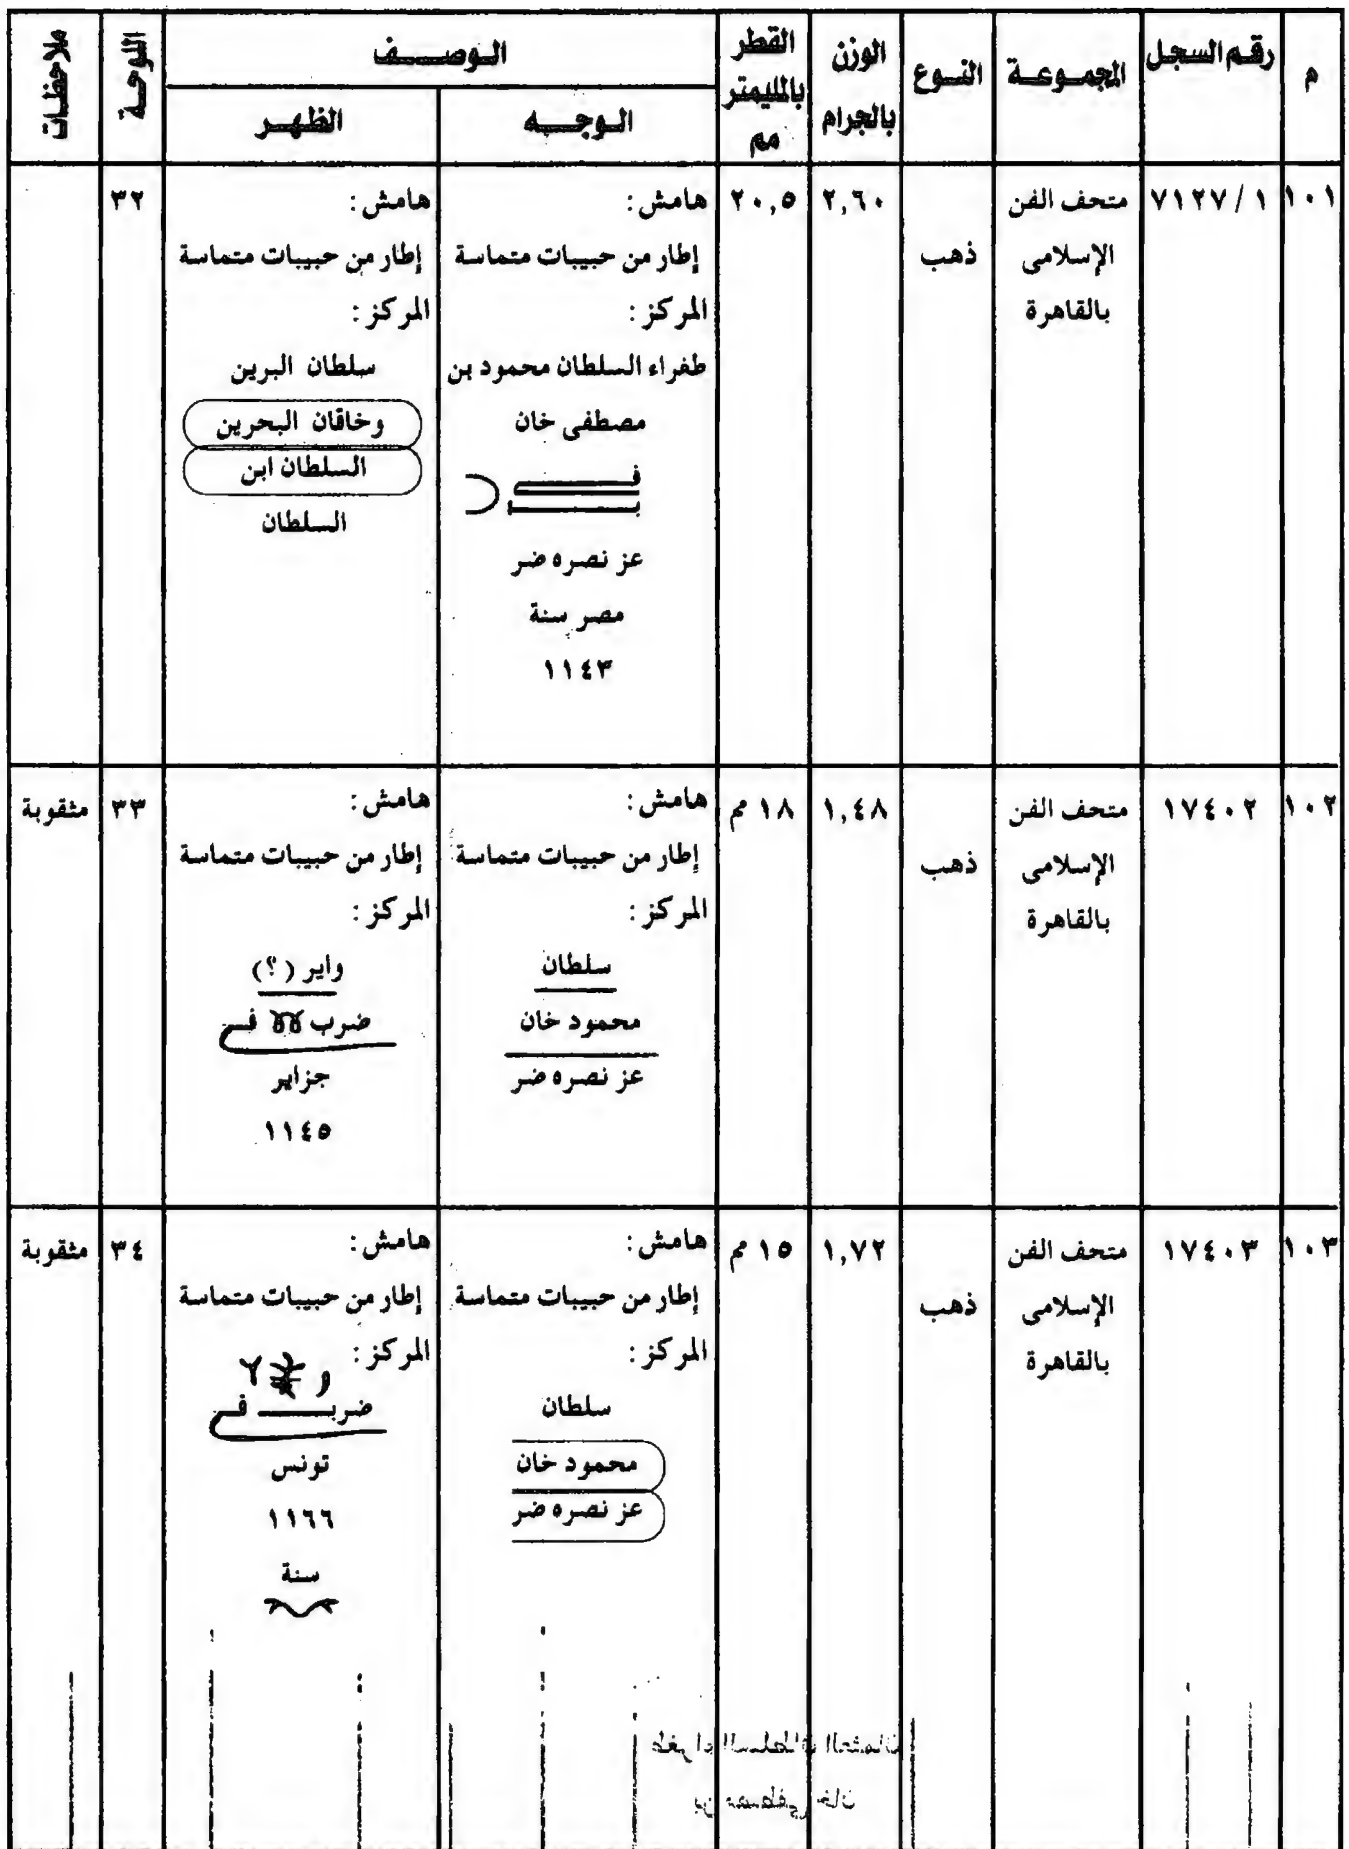 م
رقم السجل
المجموعة
النوع
الوزن
بالجرام
القطر
بالمليمتر
مم
الوصف
الوجه
الظهر
اللوحة
ملاحظات
١٠١
٧١٢٧/١
متحف الفن
الإسلامى
بالقاهرة
ذهب
٢,٦٠
٢٠,٥
هامش :
إطار من حبيبات متماسة
المركز :
طغراء السلطان محمود بن
مصطفى خان
فـ
بـ
عز نصره ضر
مصر سنة
١١٤٣
هامش :
إطار من حبيبات متماسة
المركز :
سلطان البرين
وخاقان البحرين
السلطان ابن
السلطان
٣٢
١٠٢
١٧٤٠٢
متحف الفن
الإسلامى
بالقاهرة
ذهب
١,٤٨
١٨ مم
هامش :
إطار من حبيبات متماسة
المركز :
سلطان
محمود خان
عز نصره ضر
هامش :
إطار من حبيبات متماسة
المركز :
واير (؟)
ضرب فـى
جزاير
١١٤٥
٣٣
مثقوبة
١٠٣
١٧٤٠٣
متحف الفن
الإسلامى
بالقاهرة
ذهب
١,٧٢
١٥ مم
هامش :
إطار من حبيبات متماسة
المركز :
سلطان
محمود خان
عز نصره ضر
هامش :
إطار من حبيبات متماسة
المركز :
ضربـ فـى
تونس
١١٦٦
سنة
٣٤
مثقوبة